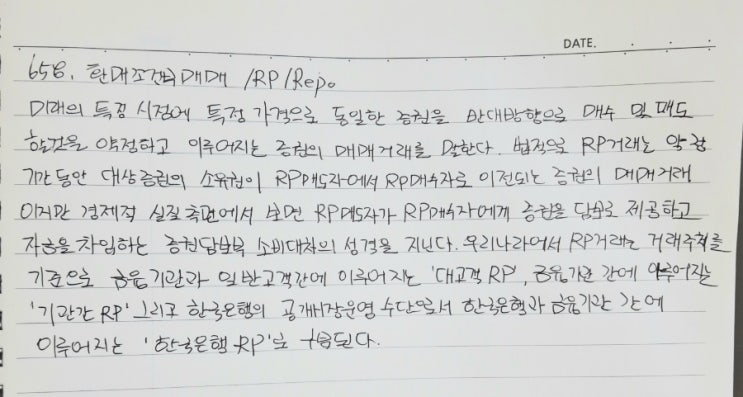 DATE.
658. 환매조건부매매 /RP/Repo
미래의 특정 시점에 특정 가격으로 동일한 증권을 반대방향으로 매수 및 매도
할것을 약정하고 이루어지는 증권의 매매거래를 말한다. 법적으로 RP거래는 약정
기간동안 대상증권의 소유권이 RP매도자에서 RP매수자로 이전되는 증권의 매매거래
이지만 경제적 실질 측면에서 보면 RP매도자가 RP매수자에게 증권을 담보로 제공하고
자금을 차입하는 증권담보부 소비대차의 성격을 지닌다. 우리나라에서 RP거래는 거래주체를
기준으로 금융기관과 일반고객간에 이루어지는 '대고객 RP', 금융기관 간에 이루어지는
'기관간 RP' 그리고 한국은행의 공개시장운영 수단으로서 한국은행과 금융기관 간에
이루어지는 '한국은행 RP'로 구분된다.